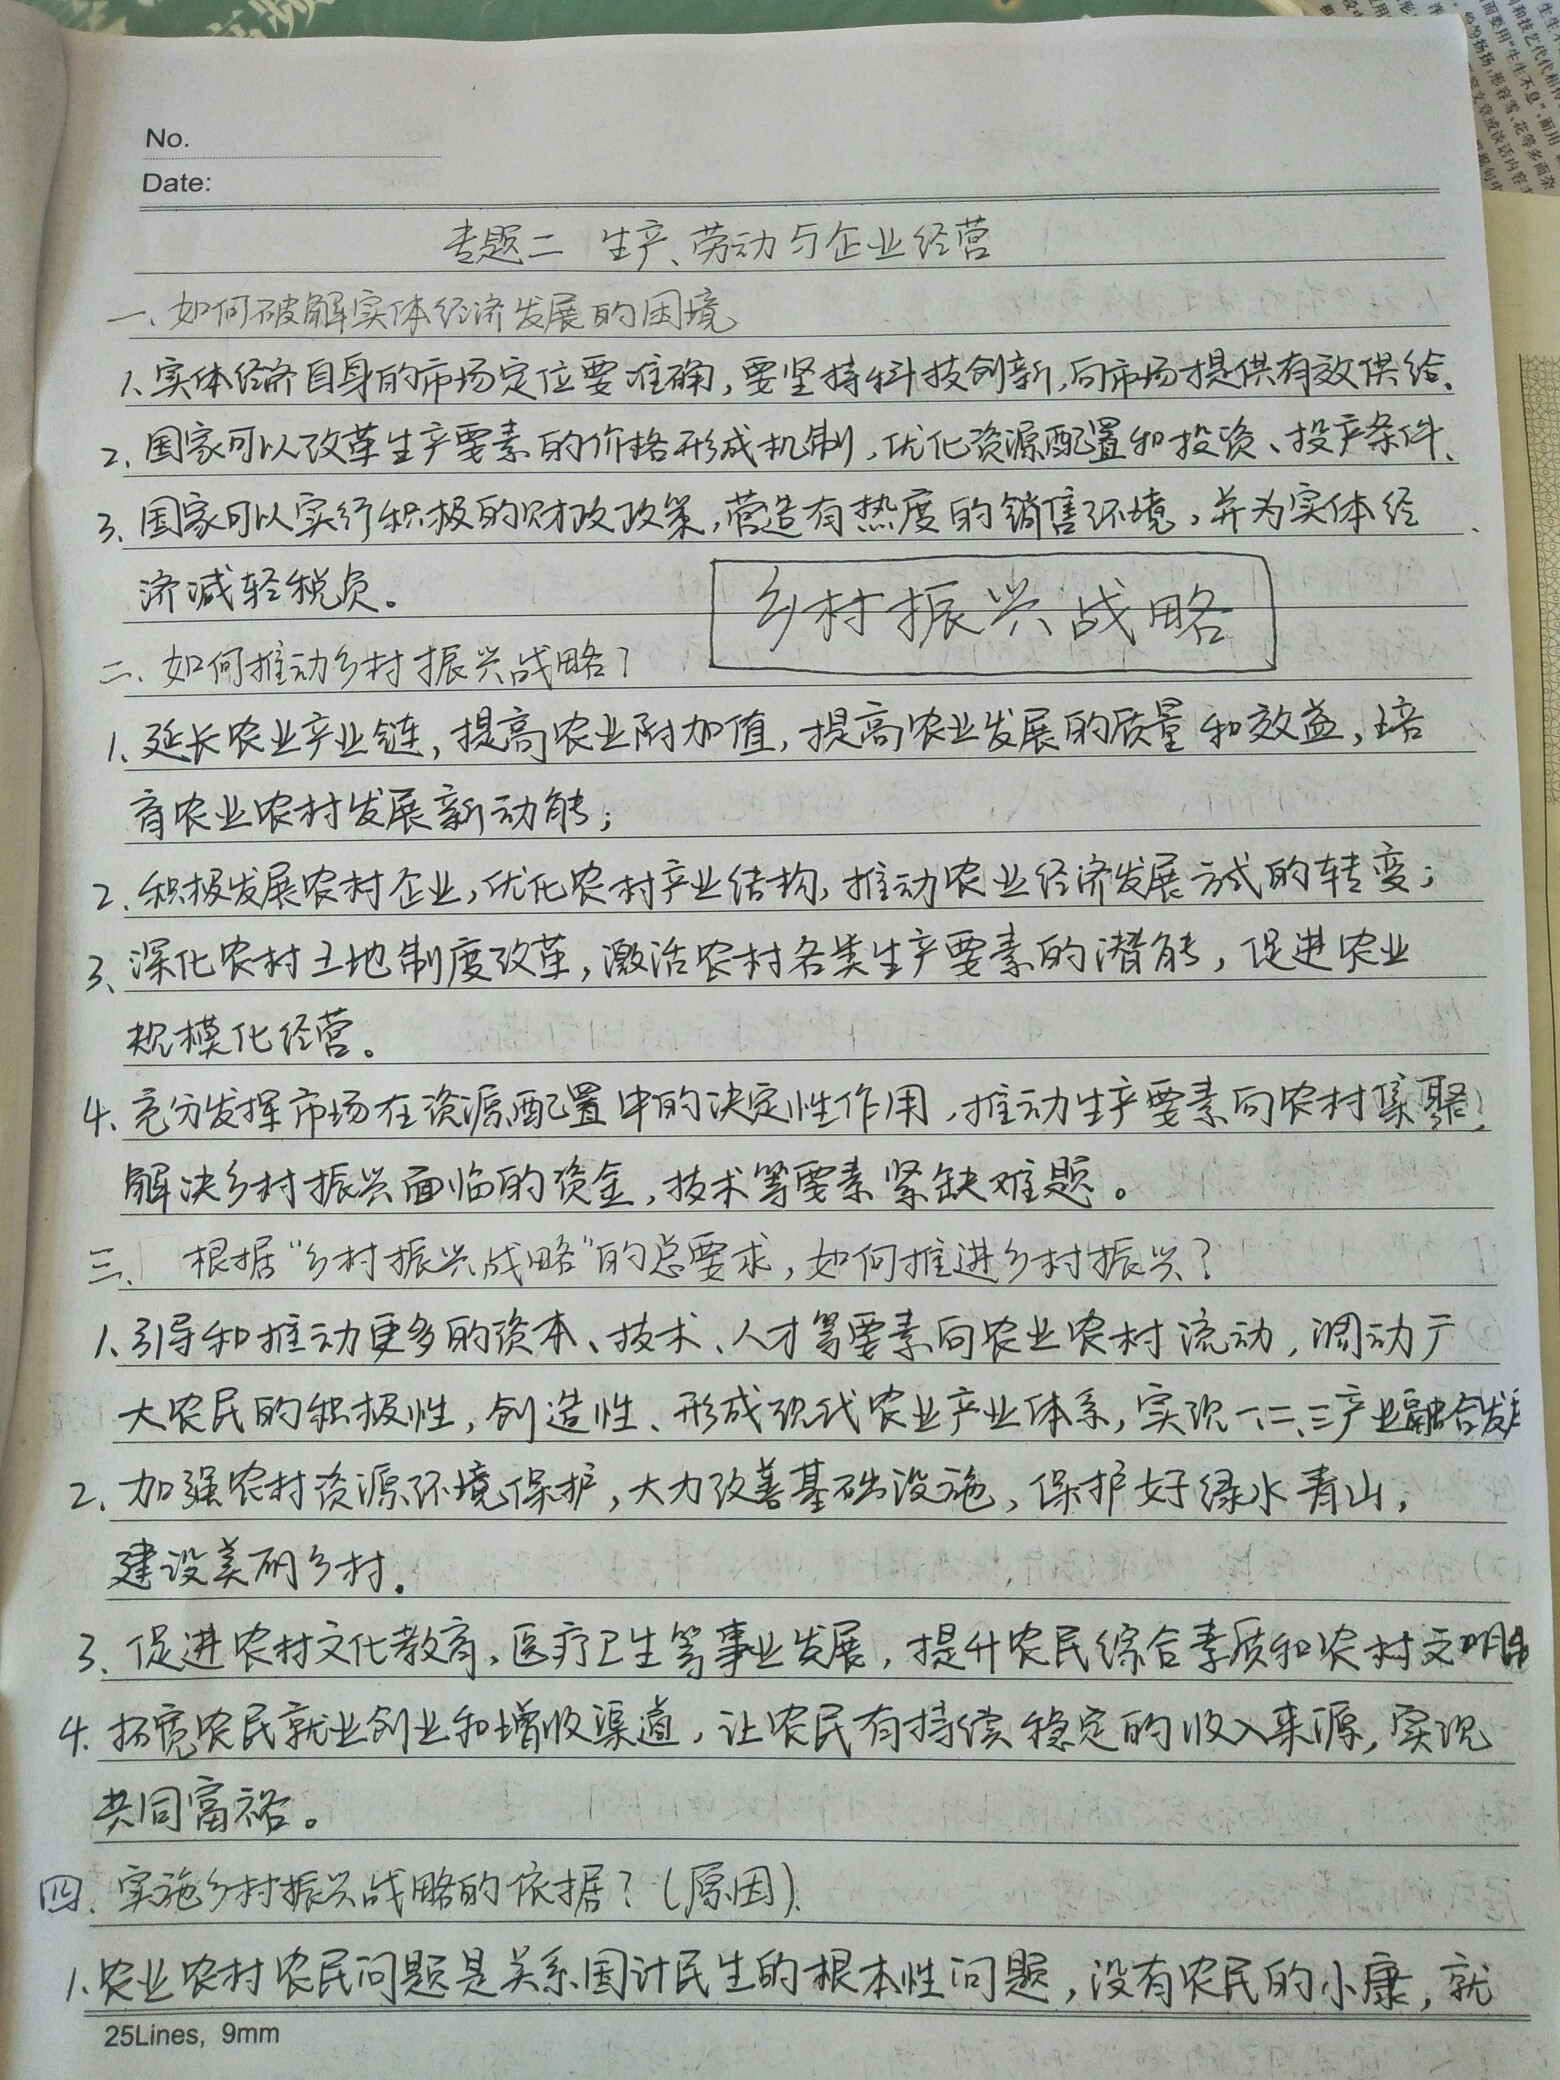 No.
Date:
专题二 生产、劳动与企业经营
一、如何破解实体经济发展的困境
1、实体经济自身的市场定位要准确，要坚持科技创新，向市场提供有效供给、
2、国家可以改革生产要素的价格形成机制，优化资源配置和投资、投产条件、
3、国家可以实行积极的财政政策，营造有热度的销售环境，并为实体经
济减轻税负。
乡村振兴战略
二、如何推动乡村振兴战略？
1、延长农业产业链，提高农业附加值，提高农业发展的质量和效益，培
育农业农村发展新动能；
2、积极发展农村企业，优化农村产业结构，推动农业经济发展方式的转变；
3、深化农村土地制度改革，激活农村各类生产要素的潜能，促进农业
规模化经营。
4、充分发挥市场在资源配置中的决定性作用，推动生产要素向农村集聚，
解决乡村振兴面临的资金，技术等要素紧缺难题。
三、根据“乡村振兴战略”的总要求，如何推进乡村振兴？
1、引导和推动更多的资本、技术、人才等要素向农业农村流动，调动广
大农民的积极性，创造性、形成现代农业产业体系，实现一、二、三产业融合发
2、加强农村资源环境保护，大力改善基础设施，保护好绿水青山，
建设美丽乡村.
3、促进农村文化教育，医疗卫生等事业发展，提升农民综合素质和农村文明
4、拓宽农民就业创业和增收渠道，让农民有持续稳定的收入来源，实现
共同富裕。
四、实施乡村振兴战略的依据？（原因）、
1、农业农村农民问题是关系国计民生的根本性问题，没有农民的小康，就
25Lines, 9mm